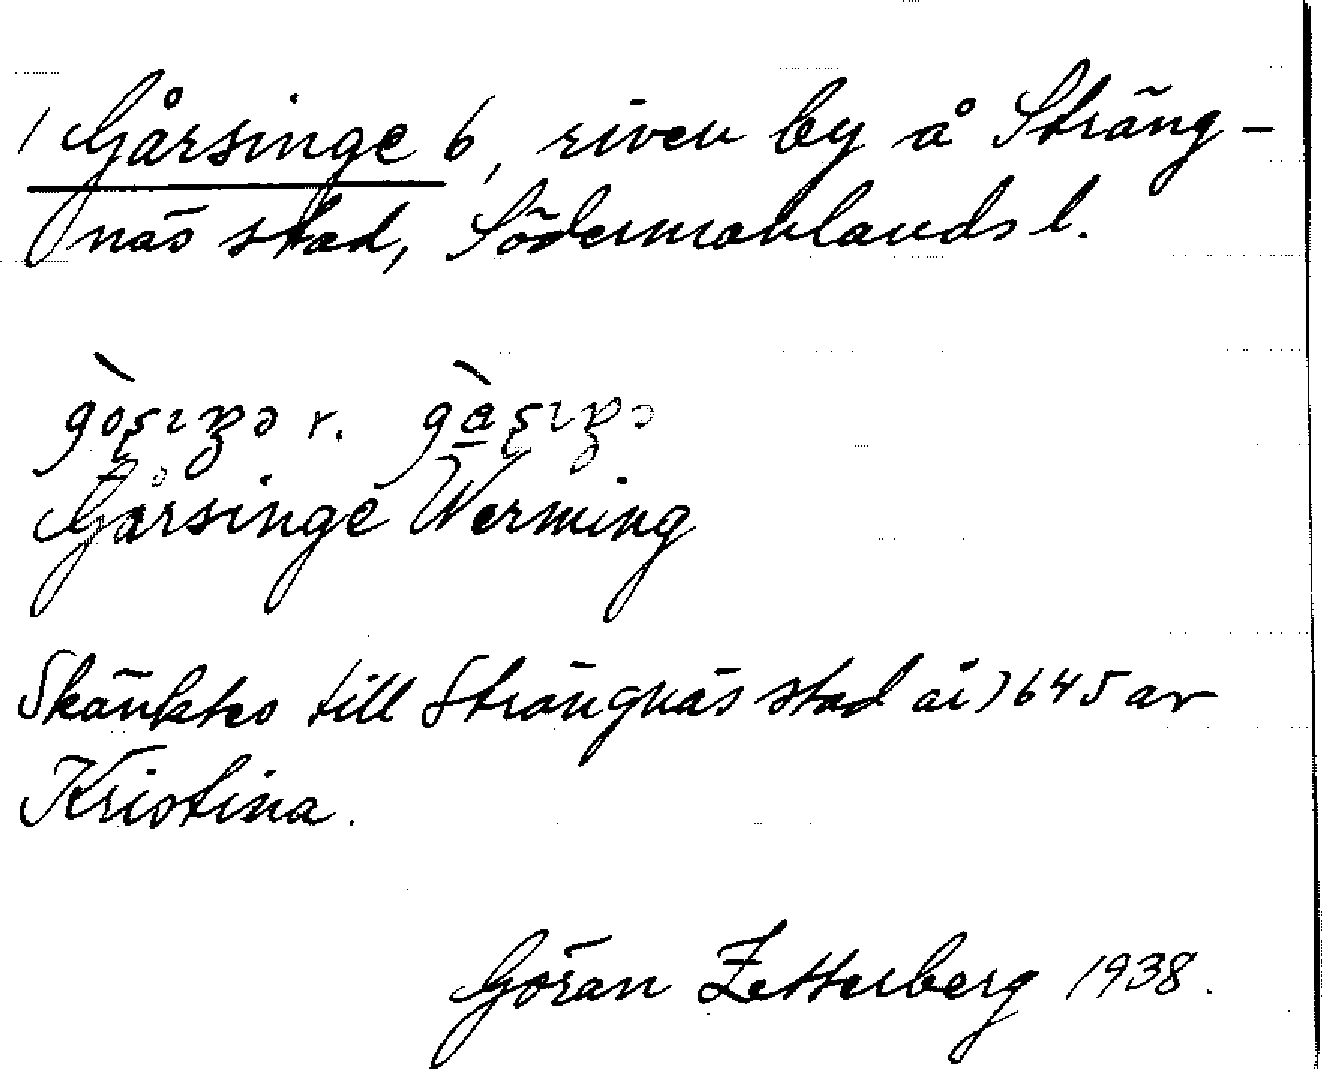 1 Gårsinge 6, riven by å Sträng-
näs stad, Södermanlands l.
r.
Gårsinge Werming
Skänktes till Strängnäs stad år 1645 av
Kristina.
Göran Zetterberg 1938.